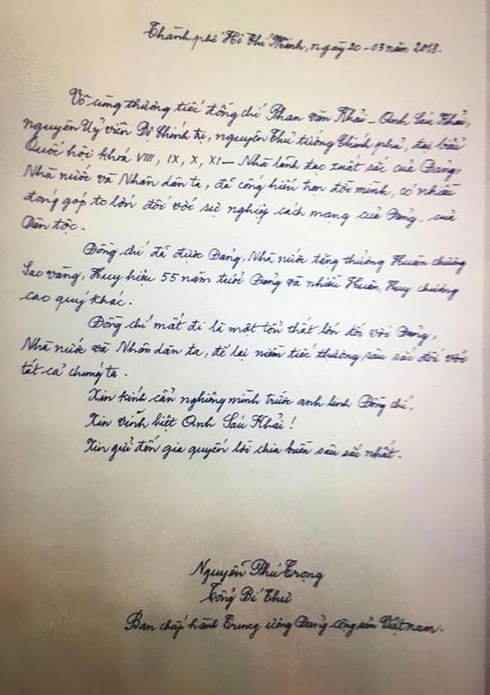 Thành phố Hồ Chí Minh, ngày 20-03 năm 2018.
Vô cùng thương tiếc đồng chí Phan Văn Khải - Anh Sáu Khải,
nguyên Uỷ viên Bộ Chính trị, nguyên Thủ tướng Chính phủ, đại biểu
Quốc hội khoá VIII, IX, X, XI - Nhà lãnh đạo xuất sắc của Đảng,
Nhà nước và Nhân dân ta, đã cống hiến trọn đời mình, có nhiều
đóng góp to lớn đối với sự nghiệp cách mạng của Đảng, của
Dân tộc.
Đồng chí đã được Đảng, Nhà nước tặng thưởng Huân chương
Sao vàng, Huy hiệu 55 năm tuổi Đảng và nhiều Huân, Huy chương
cao quý khác.
Đồng chí mất đi là một tổn thất lớn đối với Đảng,
Nhà nước và Nhân dân ta, để lại niềm tiếc thương sâu sắc đối với
tất cả chúng ta.
Xin kính cẩn nghiêng mình trước anh linh Đồng chí.
Xin vĩnh biệt Anh Sáu Khải!
Xin gửi đến gia quyến lời chia buồn sâu sắc nhất.
Nguyễn Phú Trọng
Tổng Bí Thư
Ban chấp hành Trung ương Đảng cộng sản Việt Nam.